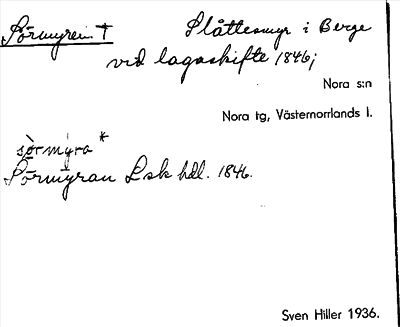 Sörmyren † Slåttesmyr i Berge
vid lagaskifte 1846;
Nora s:n
Nora tg, Västernorrlands l.
sörmýra *
Sörmyran Lsk hdl. 1846.
Sven Hiller 1936.